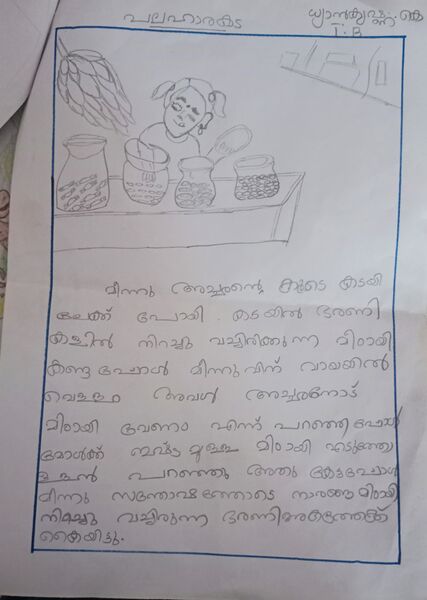 പലഹാരകട
ധ്യാനകൃഷ്ണ. കെ
I. B
മിന്നു അച്ഛന്റെ കൂടെ കടയി
ലേക്ക് പോയി . കടയിൽ ഭരണി
കളിൽ നിറച്ചു വച്ചിരിക്കുന്ന മിഠായി
കണ്ടപ്പോൾ മിന്നുവിന് വായയിൽ
വെള്ളം അവൾ അച്ഛനോട്
മിഠായി വേണം എന്ന് പറഞ്ഞപ്പോൾ
മോൾക്ക് ഇഷ്ടമുള്ള മിഠായി എടുത്തോ
ളാൻ പറഞ്ഞു അതു കേട്ടപ്പോൾ
മിന്നു സന്തോഷത്തോടെ നാരങ്ങമിഠായി
നിറച്ചു വച്ചിരുന്ന ഭരണിഅകത്തേക്ക്
കൈയിട്ടു.